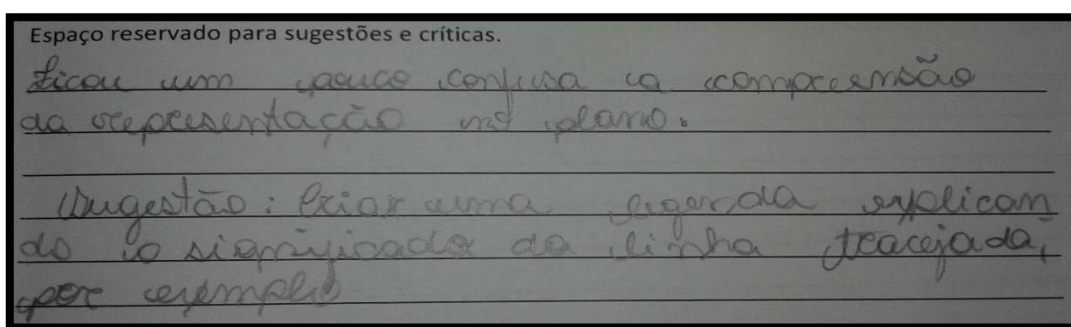 Espaço reservado para sugestões e críticas.
Ficou um pouco confusa a compreensão
da representação no plano.
Sugestão: Criar uma legenda explican
do o significado da linha tracejada,
por exemplo